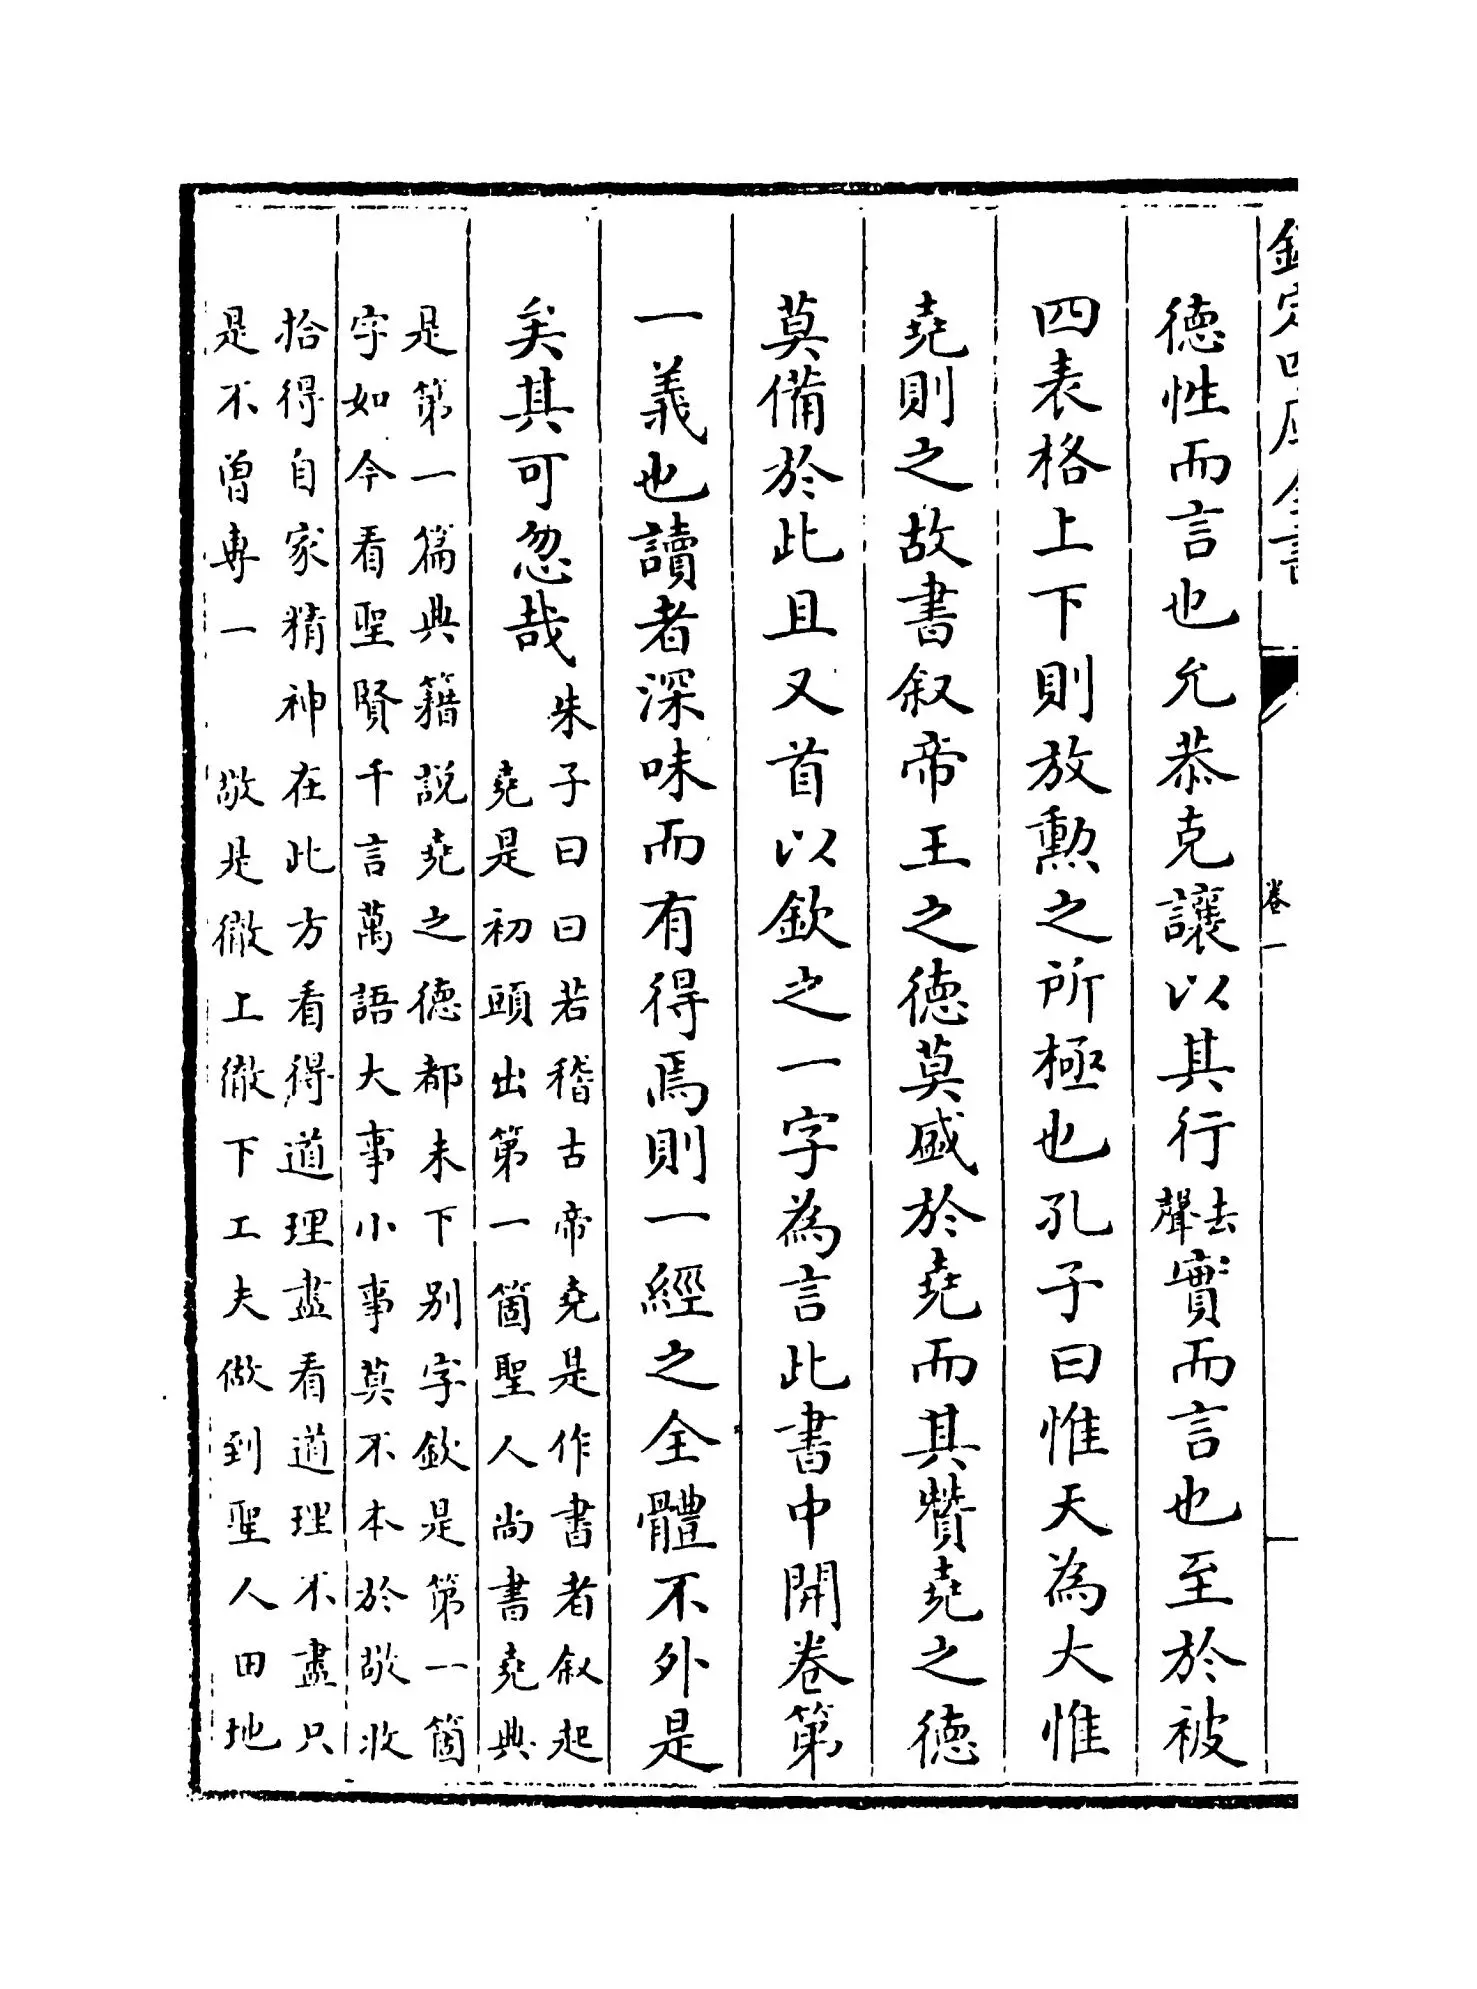 欽定四庫全書
卷一
德性而言也允恭克讓以其行去聲實而言也至於被
四表格上下則放勲之所極也孔子曰惟天為大惟
堯則之故書叙帝王之德莫盛於堯而其贊堯之德
莫備於此且又首以欽之一字為言此書中開卷第
一義也讀者深味而有得焉則一經之全體不外是
矣其可忽哉
朱子曰曰若稽古帝堯是作書者叙起
堯是初頭出第一箇聖人尚書堯典
是第一篇典籍說堯之德都未下别字欽是第一箇
字如今看聖賢千言萬語大事小事莫不本於敬收
拾得自家精神在此方看得道理盡看道理不盡只
是不曽専一 敬是徹上徹下工夫做到聖人田地